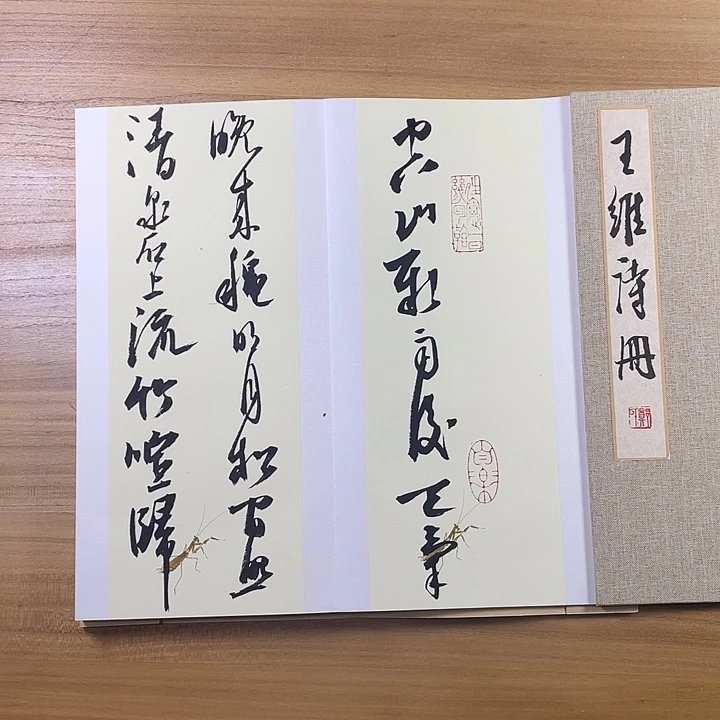 王維詩冊
空山新雨後天氣
晚來穐明月松間照
清泉石上流竹喧歸